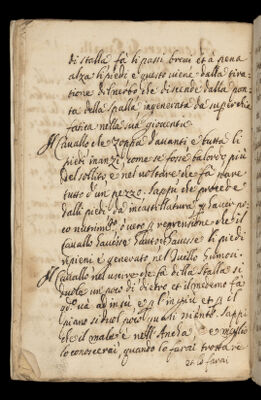 di stalla fa li passi brevi et a pena
alza li piedi e questo viene dalla tira
tione di nerbo che discende dalla pon
ta della spalla ingenerata da superchia
fatica nella sua gioventù
Il Cavallo che zoppica davanti e tutta li
piedi inanzi come se fosse calore più
del sollito e nel voltare che fa pare
tutto d'un pezzo. Sappi che procede
dalli piedi da incastellatura
nutrim.to o vero reprensione che il
cavallo havesse li piedi
ripieni e generato nel quello humori.
Il Cavallo nel uscire che fa di la stalla si
duole un poco di dietro et il medemo fa
in più e il
piano si duol poco quasi niente. Sappi
che il male è nell'Ancha e meglio
lo conoscerai, quanto lo farai trottare
et lo farai